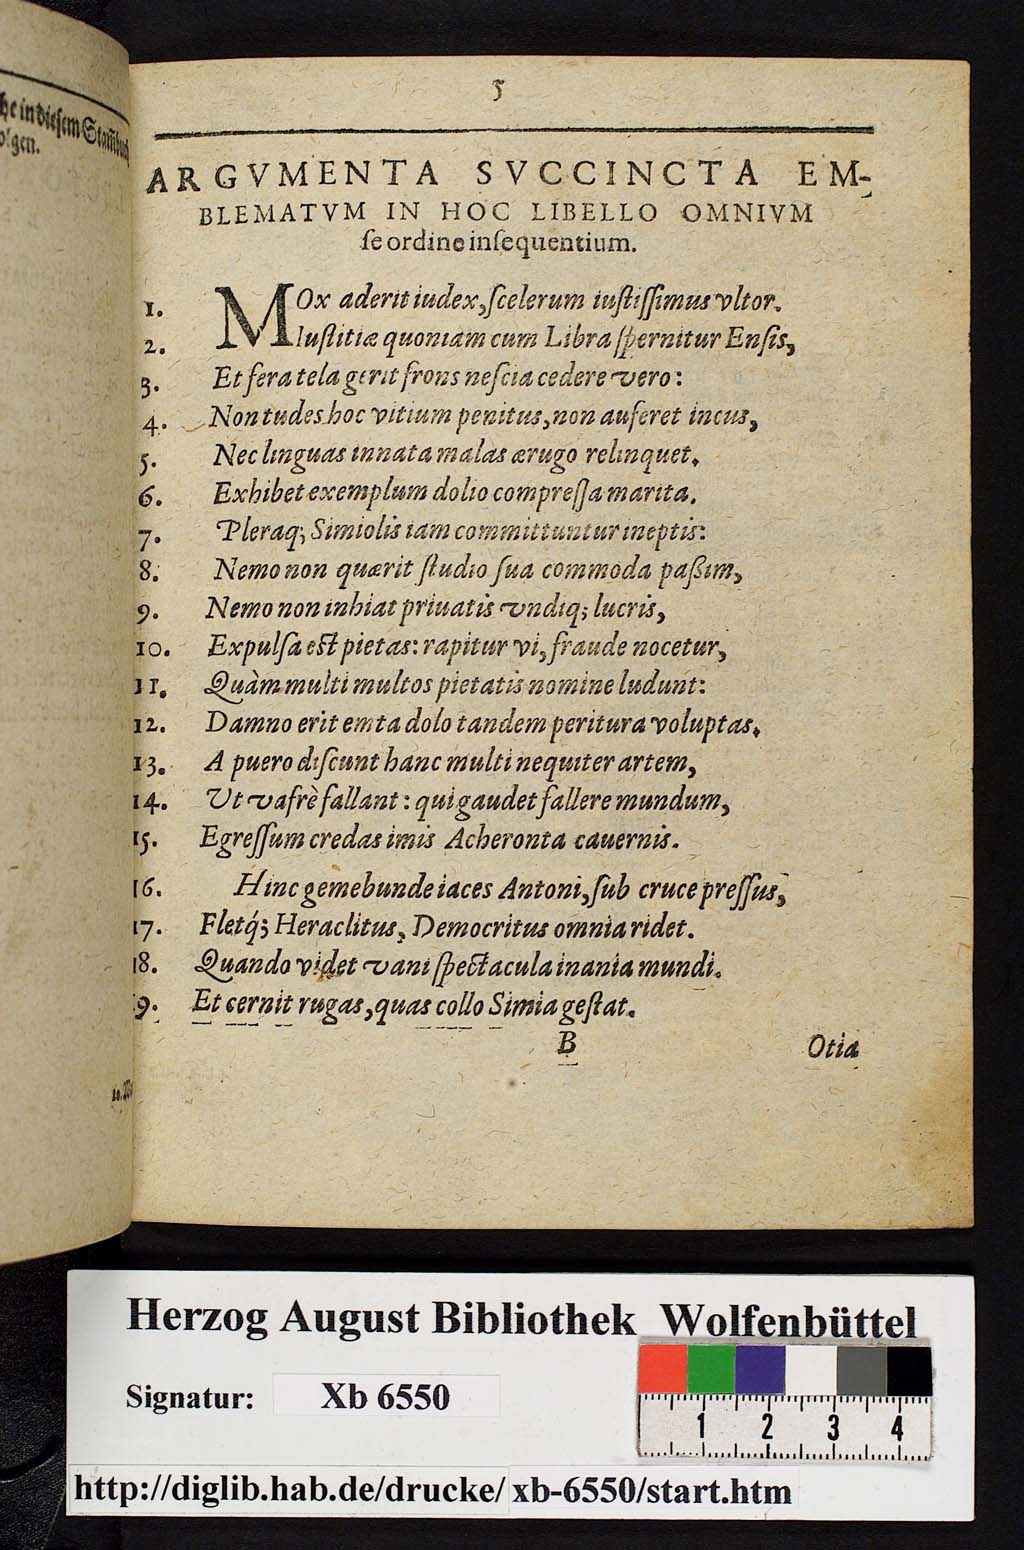 he in diesem Stam̃buch
olgen.
5
ARGVMENTA SVCCINCTA EM-
BLEMATVM IN HOC LIBELLO OMNIVM
ſe ordine inſequentium.
1. MOx aderit iudex, ſcelerum iuſtiſſimus vltor.
2. Iuſtitiæ quoniam cum Libra ſpernitur Enſis,
3. Et fera tela gerit frons neſcia cedere vero:
4. Non tudes hoc vitium penitus, non auferet incus,
5. Nec linguas innata malas ærugo relinquet.
6. Exhibet exemplum dolio compreſſa marita.
7. Pleraq; Simiolis iam committuntur ineptis:
8. Nemo non quærit ſtudio ſua commoda paßim,
9. Nemo non inhiat priuatis vndiq; lucris,
10. Expulſa eſt pietas: rapitur vi, fraude nocetur,
11. Quàm multi multos pietatis nomine ludunt:
12. Damno erit emta dolo tandem peritura voluptas.
13. A puero diſcunt hanc multi nequiter artem,
14. Ut vafrè fallant: qui gaudet fallere mundum,
15. Egreſſum credas imis Acheronta cauernis.
16. Hinc gemebunde iaces Antoni, ſub cruce preſſus,
17. Fletq́; Heraclitus, Democritus omnia ridet.
18. Quando videt vani ſpectacula inania mundi.
19. Et cernit rugas, quas collo Simia geſtat.
B Otia
Herzog August Bibliothek Wolfenbüttel
Signatur: Xb 6550
1 2 3 4
http://diglib.hab.de/drucke/xb-6550/start.htm